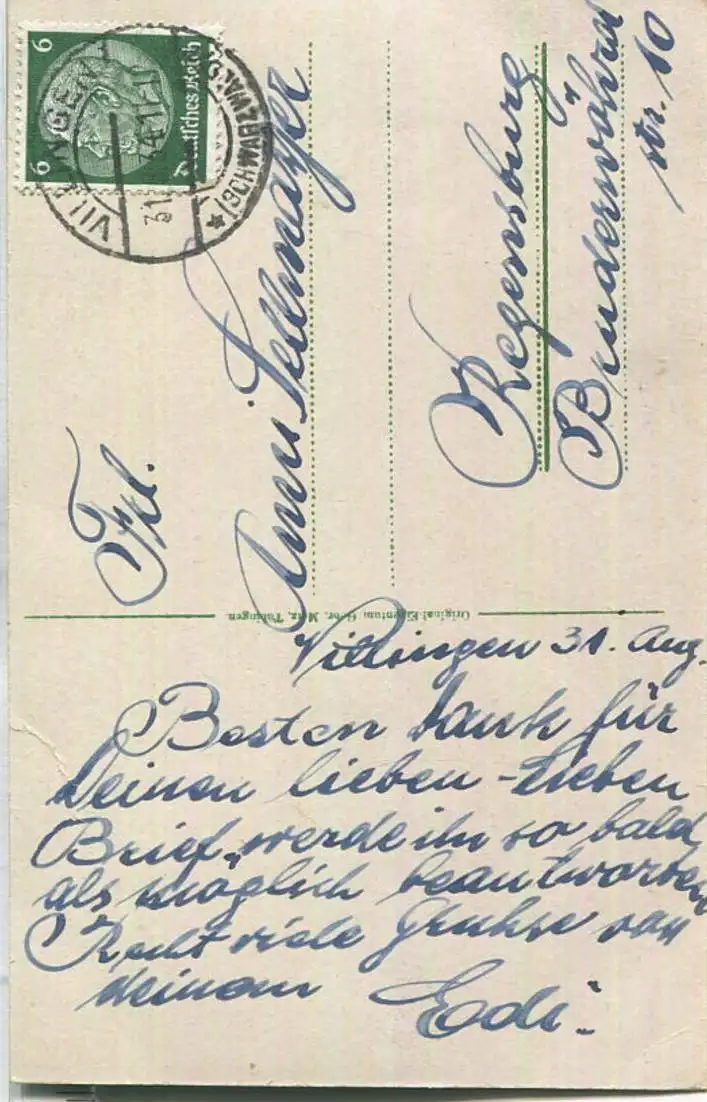 6 6
Deutsches Reich
VILLINGEN
(SCHWARZWALD)
31.
Frl.
Anni Sellmayer
Regensburg
Bruderwöhrd
str. 10
Original-Eigentum Gebr. Metz, Tübingen
Villingen 31. Aug.
Besten Dank für
Deinen lieben - lieben
Brief, werde ihn so bald
als möglich beantworten
Recht viele Grühse von
deinem
Edi.